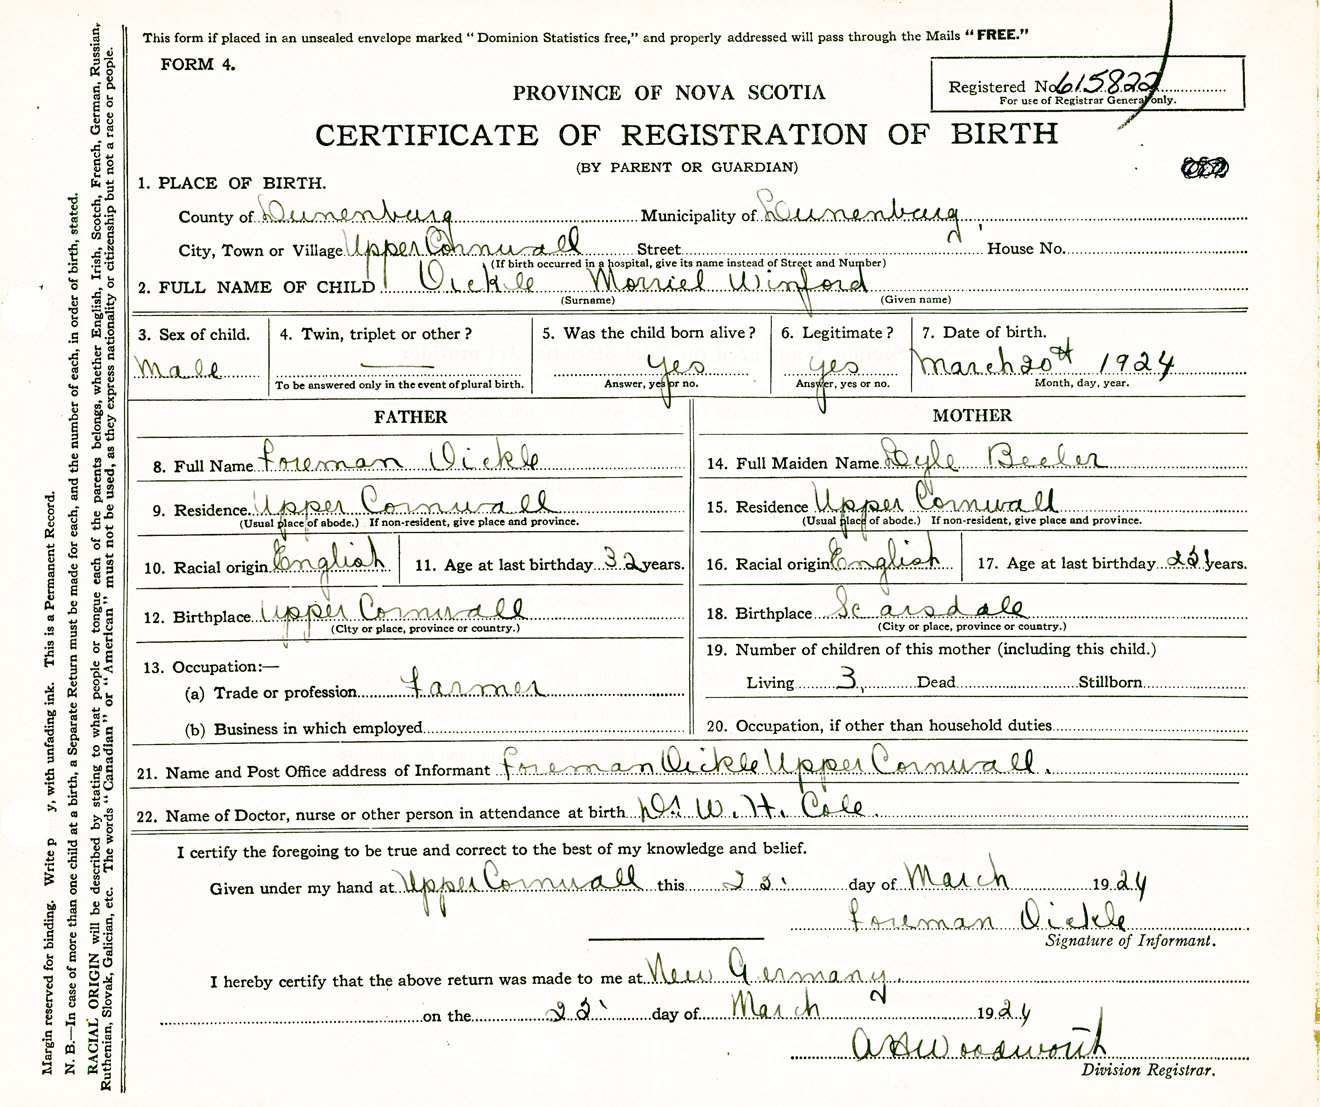 This form if placed in an unsealed envelope marked "Dominion Statistics free," and properly addressed will pass through the Mails "FREE."
FORM 4.
Registered No. 615822
For use of Registrar General only.
PROVINCE OF NOVA SCOTIA
CERTIFICATE OF REGISTRATION OF BIRTH
(BY PARENT OR GUARDIAN)
1. PLACE OF BIRTH.
County of Lunenburg Municipality of Lunenburg
City, Town or Village Upper Cornwall Street House No.
(If birth occurred in a hospital, give its name instead of Street and Number)
2. FULL NAME OF CHILD Veinot Morriel Winford
(Surname) (Given name)
3. Sex of child. 4. Twin, triplet or other? 5. Was the child born alive? 6. Legitimate? 7. Date of birth.
Male yes yes March 20th 1924
To be answered only in the event of plural birth. Answer, yes or no. Answer, yes or no. Month, day, year.
FATHER MOTHER
8. Full Name Foreman Vickle 14. Full Maiden Name Lyle Beeler
9. Residence. Upper Cornwall 15. Residence Upper Cornwall
(Usual place of abode.) If non-resident, give place and province. (Usual place of abode.) If non-resident, give place and province.
10. Racial origin English 11. Age at last birthday 32 years. 16. Racial origin English 17. Age at last birthday years.
12. Birthplace Upper Cornwall 18. Birthplace Scarsdale
(City or place, province or country.) (City or place, province or country.)
13. Occupation:— 19. Number of children of this mother (including this child.)
(a) Trade or profession Farmer Living 3, Dead Stillborn
(b) Business in which employed 20. Occupation, if other than household duties
21. Name and Post Office address of Informant Foreman Vickle Upper Cornwall.
22. Name of Doctor, nurse or other person in attendance at birth Dr. W. H. Cole.
I certify the foregoing to be true and correct to the best of my knowledge and belief.
Given under my hand at Upper Cornwall this 22 day of March 1924
Foreman Vickle
Signature of Informant.
I hereby certify that the above return was made to me at New Germany.
on the 22 day of March 1924
Woodsworth
Division Registrar.
Margin reserved for binding. Write p y, with unfading ink. This is a Permanent Record.
N. B.—In case of more than one child at a birth, a Separate Return must be made for each, and the number of each, in order of birth, stated.
RACIAL ORIGIN will be described by stating to what people or tongue each of the parents belongs, whether English, Irish, Scotch, French, German, Russian,
Ruthenian, Slovak, Galician, etc. The words "Canadian" or "American" must not be used, as they express nationality or citizenship but not a race or people.